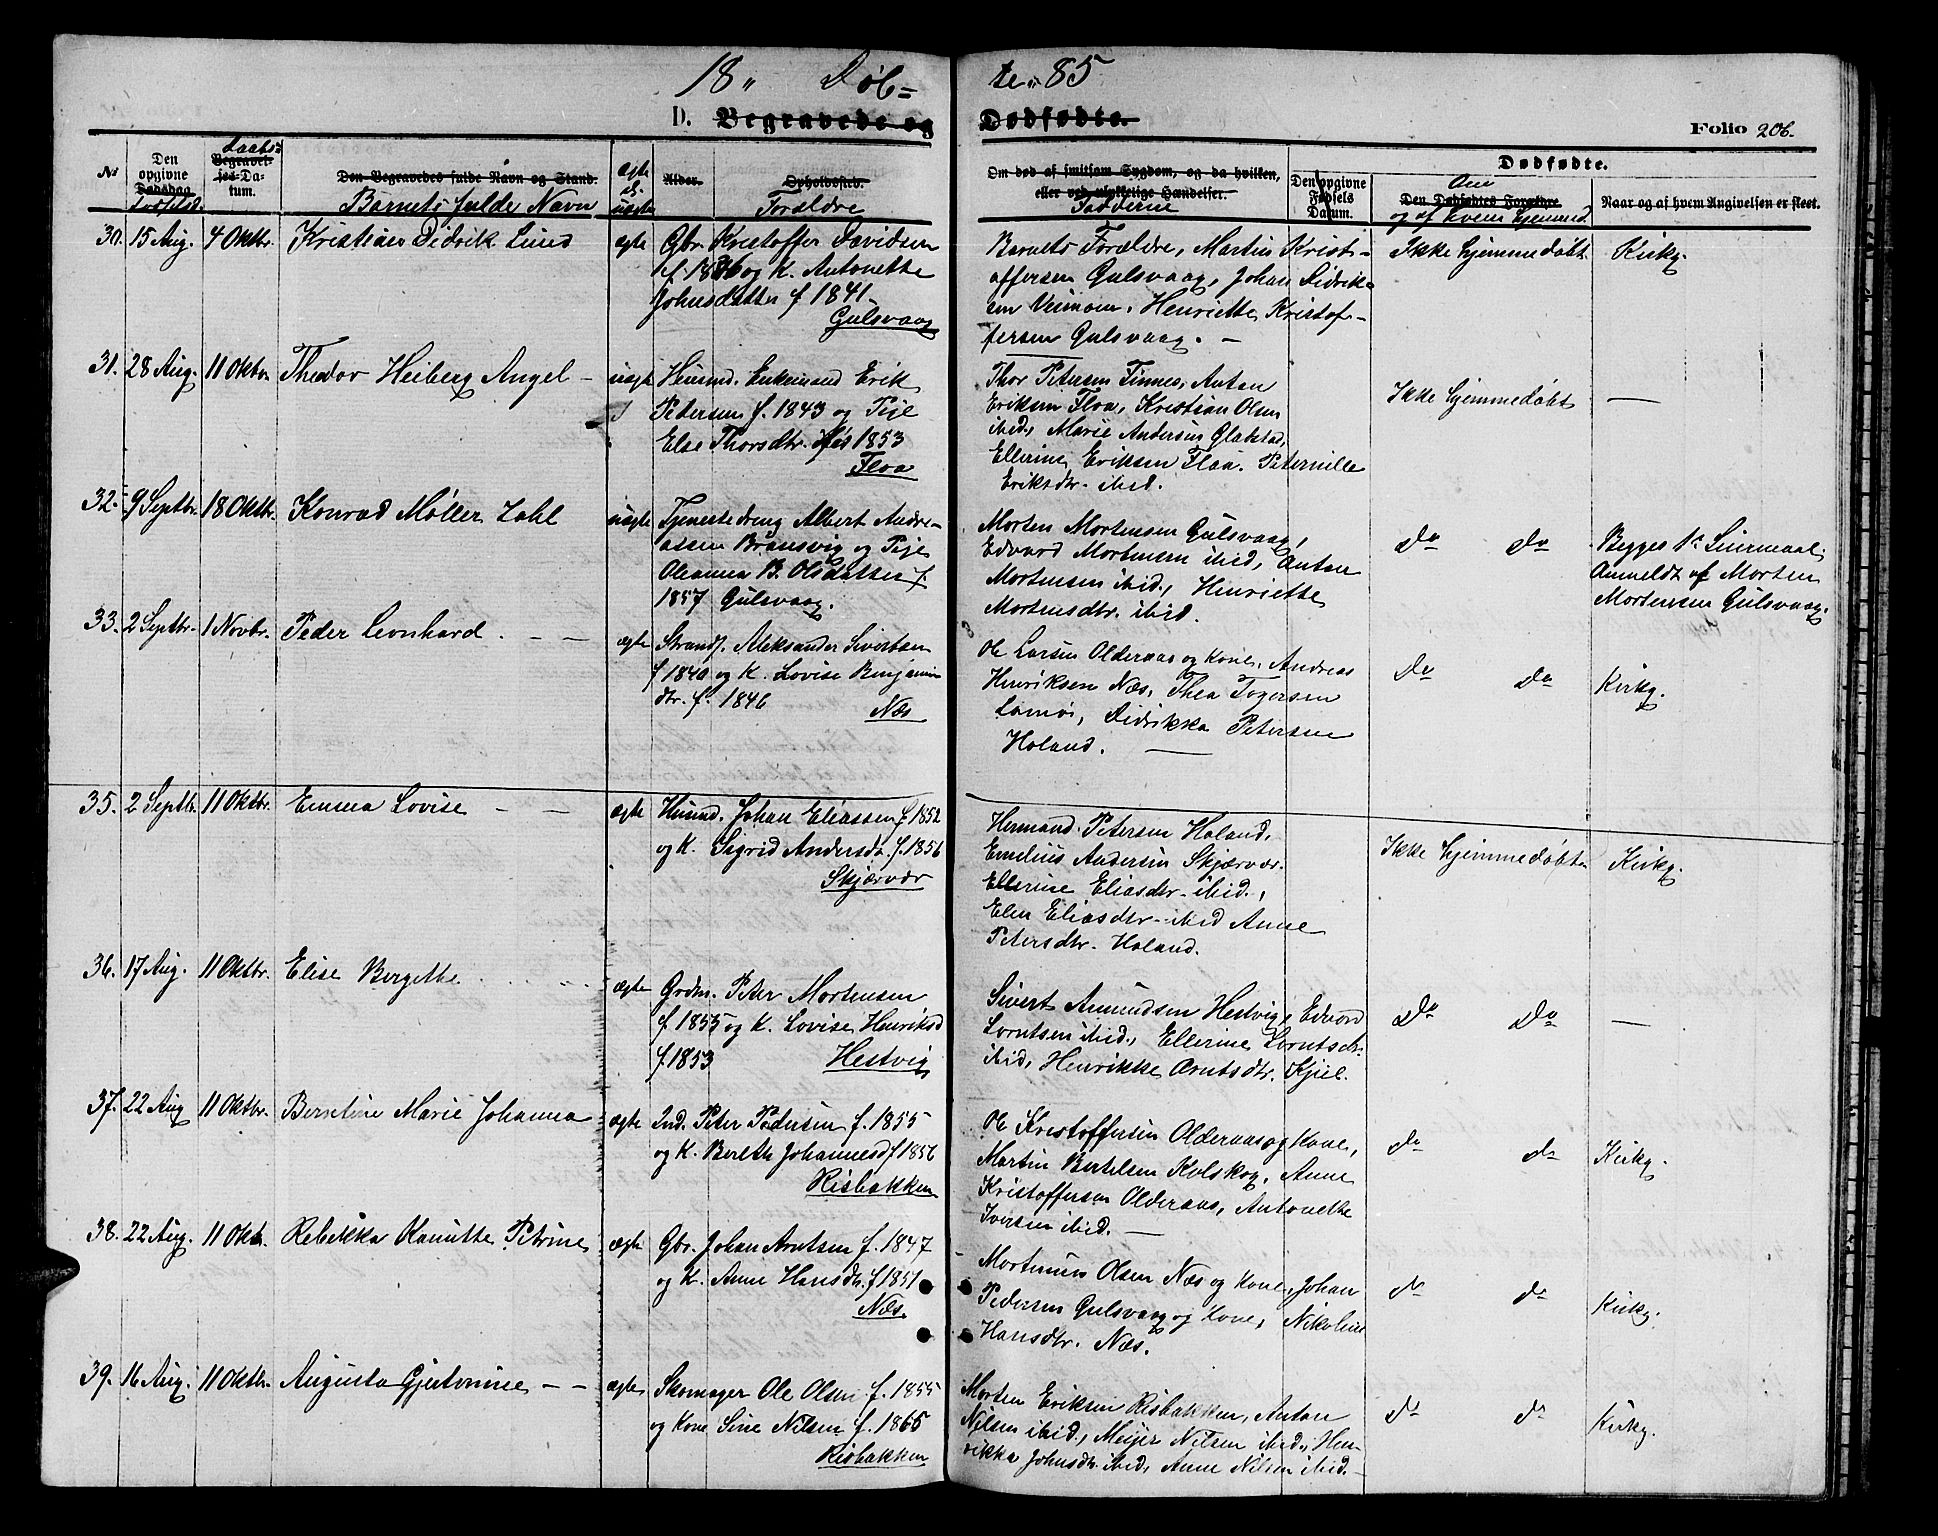 18 " Døb=
te " 85
D. Begravede og
Dødfødte.
Folio 206.
No
Den opgivne Dødsdag
Fødsels.
Begravelses-Datum.
Daabs-
Den Begravedes fulde Navn og Stand.
Barnets fulde Navn
ægte el. uægte
Alder.
Opholdssted.
Forældre
Om død af smitsom Sygdom, og da hvilken,
eller ved ulykkelige Hændelser.
Fadderne
Den opgivne Fødsels Datum.
Dødfødte.
Om
Den Dødfødtes Forældre.
og af hvem hjemmed.
Naar og af hvem Angivelsen er skeet.
30. 15 Aug. 4 Oktbr. Kristian Didrik Lund ægte Gbr. Kristoffer Davidsen
f. 1836 og K. Antonette
Johnsdatter f 1841
Gulsvaag
Barnets Forældre, Martin Kristi-
offersen Gulsvaag, Johan Didrik-
sen, Henriette Kristof-
fersen Gulsvaag. —
Ikke hjemmedøbt Kirkg.
31. 28 Aug. 11 Oktbr Theodor Heiberg Angel — uægte Huusmd. Enkemand Erik
Pedersen f. 1843 og Pige
Else Thorsdtr. født 1853
Floa
Thor Petersen Finnes, Anton
Eriksen Floa, Kristian Olsen
ibid., Marie Andersen Gladstad,
Ellerine Eriksen Floa. Peternille
Eriksdtr. ibid.
Ikke hjemmedøbt —
32. 9 Septbr. 18 Oktbr. Konrad Møller Dahl uægte Tjenestedreng Albert Andre-
assen Brønsvig og Pige
Oleanna B. Olsdatter f.
1857 Gulsvaag.
Morten Mortensen Gulsvaag,
Edvard Mortensen ibid, Anton
Mortensen ibid, Henriette
Mortensdtr. ibid.
do do Begges 1ste Leiermaal;
Anmeldt af Morten
Mortensen Gulsvaag.
33. 2 Septbr. 1 Novbr. Peder Leonhard. — — ægte Strands. Aleksander Sivertsen
f 1840 og K. Lovise Benjamin
dtr. f. 1846 Næs
Ole Larsen Olderaas og Kone, Andreas
Henriksen Næs, Thea Togersen
Lamøi, Didrikka Petersen
Holand. —
do do Kirkg.
35. 2 Septbr. 11 Oktbr. Emma Lovise — — ægte Huusmd. Johan Eliassen f. 1852
og K. Sigrid Andersd. f. 1856
Skjærvær
Hermand Petersen Holand,
Emelius Andersen Skjærvær.
Ellerine Eliasdtr. ibid.,
Elen Eliasdtr ibid Anne
Petersdtr. Holand.
Ikke hjemmedøbt Kirkg.
36. 17 Aug. 11 Oktbr. Elise Bergethe ægte Grdm. Peter Mortensen
f. 1855 og K. Lovise Henriksd
f. 1853 Hestvig
Sivert Amundsen Hestvig, Edvard
Lorntsen ibid., Ellerine Lorntsdtr.
ibid, Henrikke Arntsdtr. Kjul.
do do —
37. 22 Aug 11 Oktbr. Berntine Marie Johanna ægte Ind. Peter Pedersen f. 1855
og K. Bereth Johannesd f 1856
Risbakken
Ole Kristoffersen Olderaas og Kone,
Martin Bertelsen Kolskog, Anne
Kristoffersen Olderaas, Antonette
Iversen ibid. —
do do Kirkg.
38. 22 Aug. 11 Oktb. Rebekka Kanutte Petrine ægte Gbr. Johan Arntsen f. 1847
og K. Anne Hansdtr. f 1851
Næs.
Mortinus Olsen Næs og Kone, Johan
Pedersen Gulsvaag og Kone, Nikoline
Hansdtr. Næs.
do do Kirkg.
39. 16 Aug. 11 Oktbr. Augusta Gjertvmine — — ægte Skomager Ole Olsen f. 1855
og Kone Sine Nilsen f. 1865
Risbakken
Morten Eriksen Risbakken, Anton
Nilsen ibid., Meyer Nilsen ibid., Hen-
rikka Johnsdtr. ibid, Anne Nilsen ibid.
do do Kirkg.